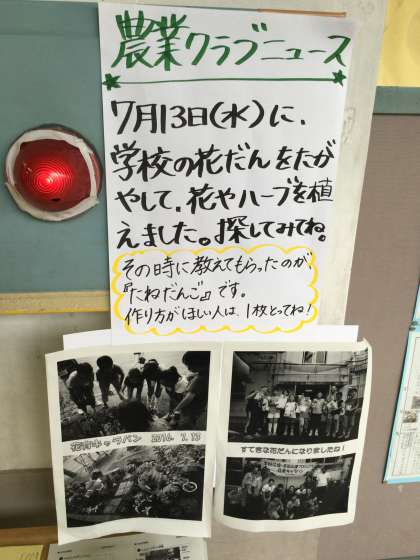 農業クラブニュース
7月13日(水)に、
学校の花だんをたが
やして、花やハーブを植
えました。探してみてね。
その時に教えてもらったのが、
『たねだんご』です。
作り方がほしい人は、1枚とってね!
花育キャラバン 2016.7.13
すてきな花だんになりましたね!